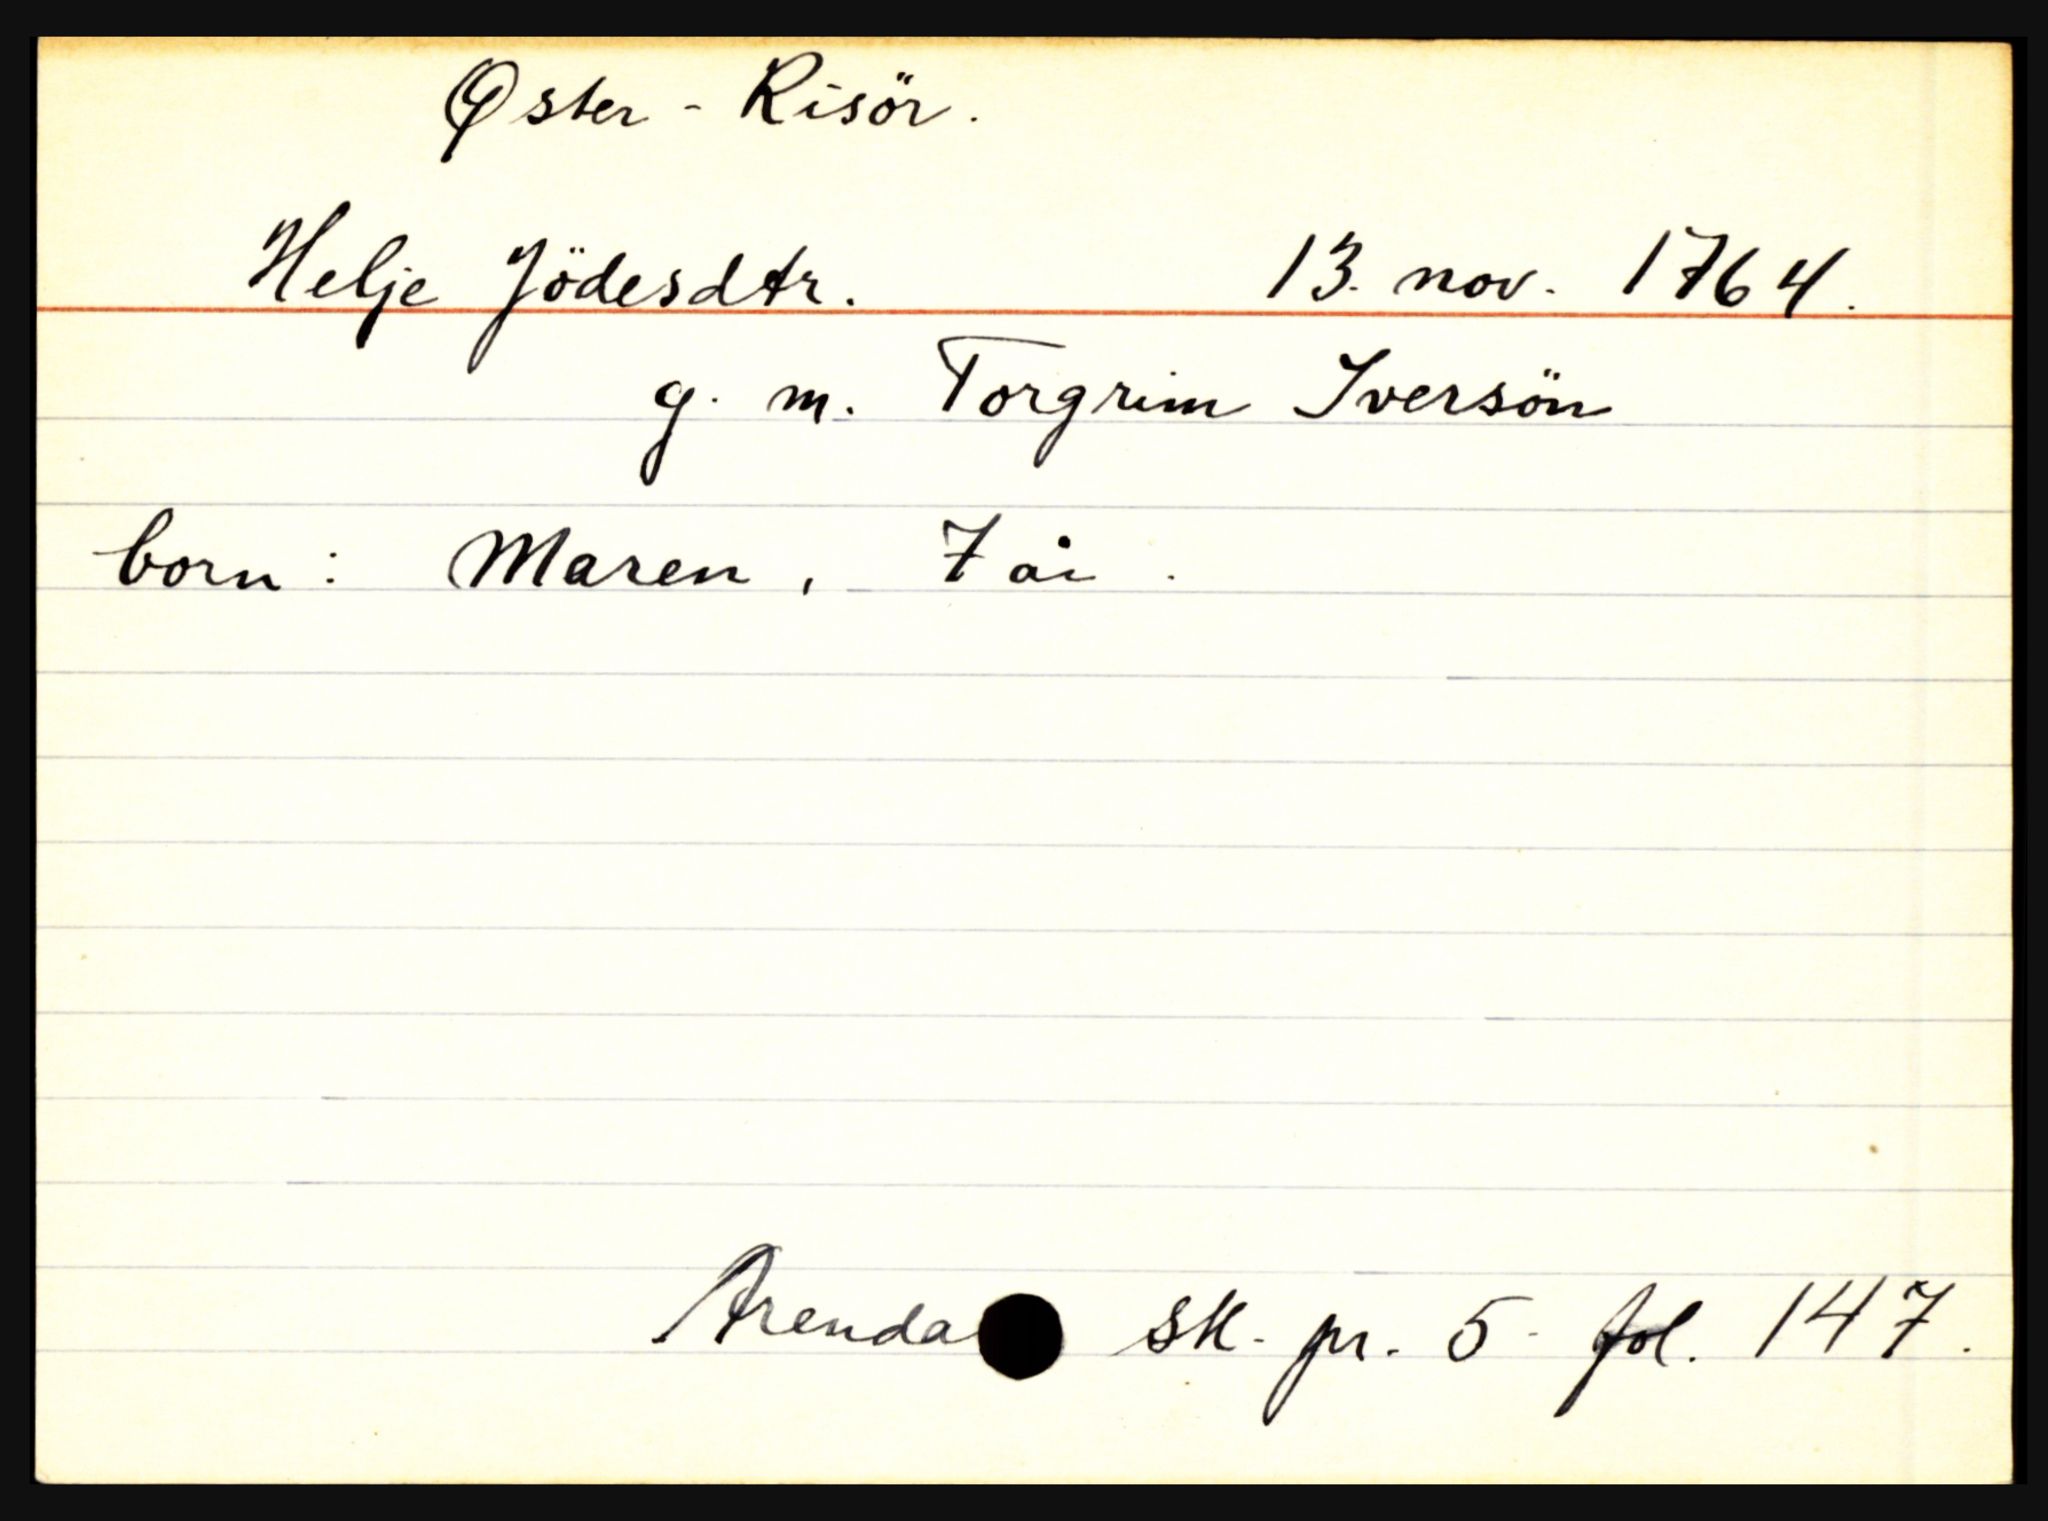 Øster - Risör.
Helje Jödesdtr. 13. nov. 1764.
g. m. Torgrim Iversön
born: Maren, 7 år.
Arenda sk. pr. 5 fol. 147.